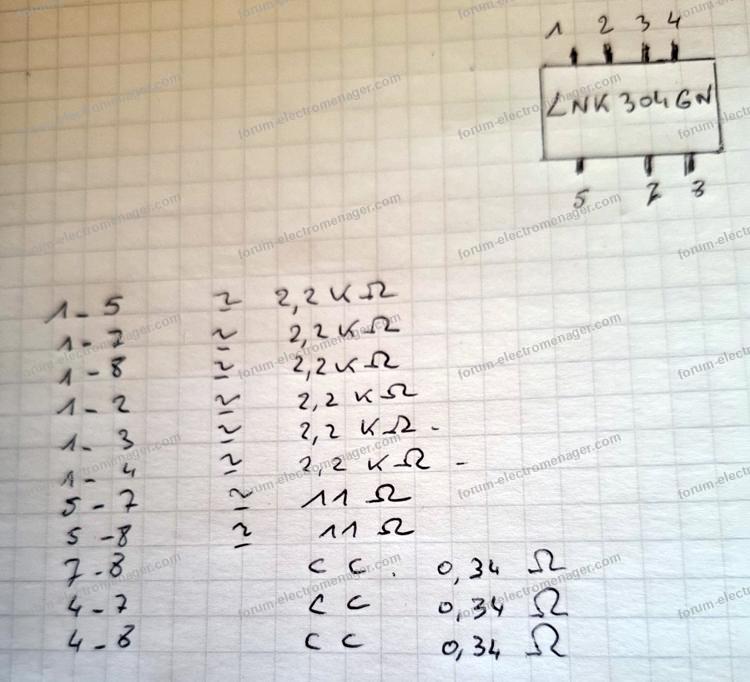 1 2 3 4
LNK 304 GN
5 7 8
1 - 5 ≃ 2,2 K Ω
1 - 7 ≃ 2,2 K Ω
1 - 8 ≃ 2,2 K Ω
1 - 2 ≃ 2,2 K Ω
1 - 3 ≃ 2,2 K Ω -
1 - 4 ≃ 2,2 K Ω -
5 - 7 ≃ 11 Ω
5 - 8 ≃ 11 Ω
7 - 8 C C . 0,34 Ω
4 - 7 C C 0,34 Ω
4 - 8 C C 0,34 Ω
forum-electromenager.com